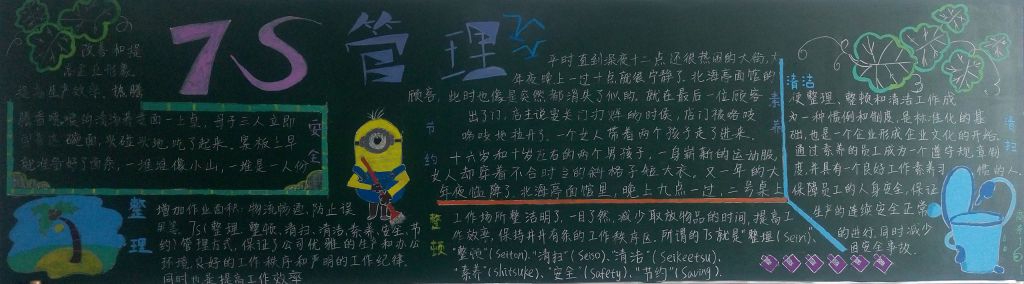 7S管理
改善和提
高企业形象
提高生产效率、
安全
腾着喷喷的清汤荞麦面一上桌，母子三人立即
围着这碗面，头碰头地吃了起来。
一堆堆像小山，一堆是一人份
整理
增加作业面积；物流畅通、防止误
用等。7S(整理、整顿、清扫、清洁、素养、安全、节
约)管理方式，保证了公司优雅的生产和办公
环境，良好的工作秩序和严明的工作纪律，
同时也是提高工作效率
节约
平时直到深夜十二点还很热闹的大街，大
年夜晚上一过十点就很宁静了。北海亭面馆的
顾客，此时也像是突然都消失了似的。就在最后一位顾客
出了门，店主说要关门打烊的时候，店门被咯吱
咯吱地拉开了。一个女人带着两个孩子走了进来。
十六岁和十岁左右的两个男孩子，一身崭新的运动服，
女人却穿着不合时兰的斜格子短大衣。又一年的大
年夜临降了。北海亭面馆里，晚上九点一过，二号桌上
素养
整顿
工作场所整洁明了，一目了然，减少取放物品的时间，提高工
作效率，保持井井有条的工作秩序区。所谓的7S就是"整理(Seiri)、
"整顿"(Seiton)、"清扫"(Seiso)、"清洁"(Seikeetsu)、
"素养"(shitsuke)、"安全"(safety)、"节约"(Saving).
清洁
使整理、整顿和清洁工作成
为一种惯例和制度，是标准化的基
础，也是一个企业形成企业文化的开始。
通过素养的员工成为一个遵守规章制
度，并具有一个良好工作素养习惯的人。
保障员工的人身安全，保证
生产的连续安全正常
的进行，同时减少
因安全事故
清扫